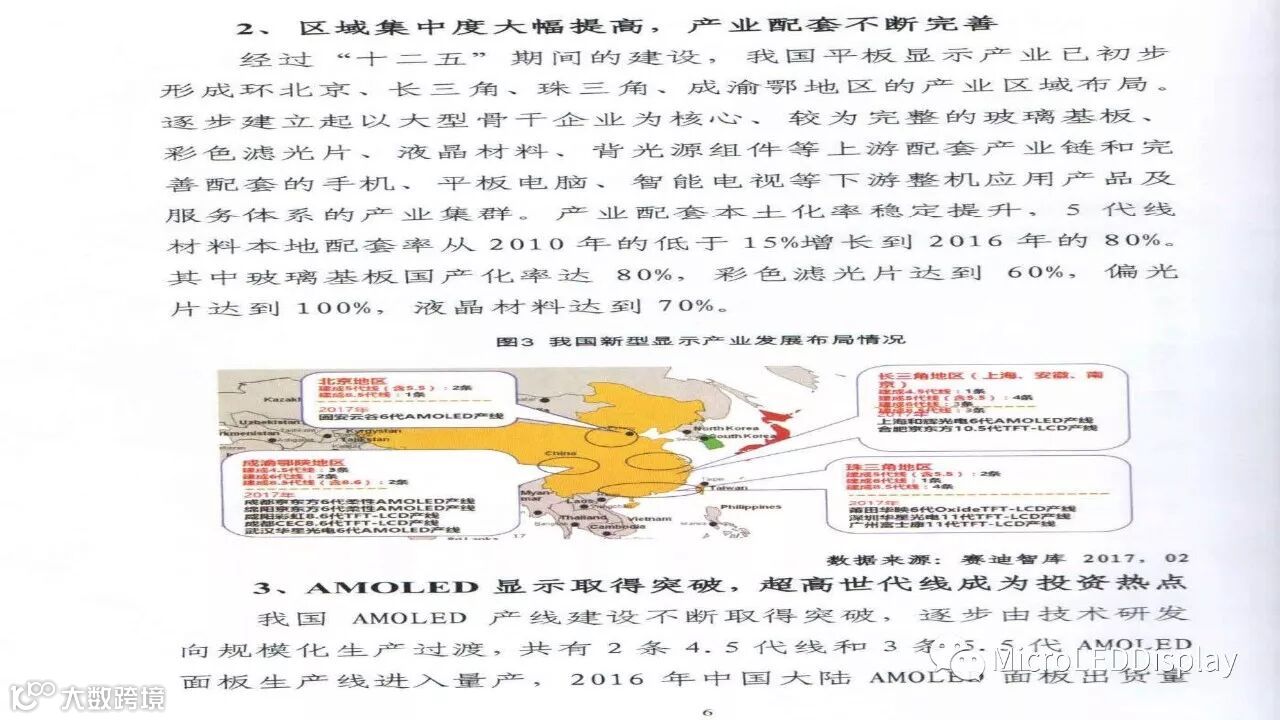 2、区域集中度大幅提高，产业配套不断完善
经过“十二五”期间的建设，我国平板显示产业已初步
形成环北京、长三角、珠三角、成渝鄂地区的产业区域布局。
逐步建立起以大型骨干企业为核心、较为完整的玻璃基板、
彩色滤光片、液晶材料、背光源组件等上游配套产业链和完
善配套的手机、平板电脑、智能电视等下游整机应用产品及
服务体系的产业集群。产业配套本土化率稳定提升，5 代线
材料本地配套率从 2010 年的低于 15%增长到 2016 年的 80%。
其中玻璃基板国产化率达 80%，彩色滤光片达到 60%，偏光
片达到 100%，液晶材料达到 70%。
图3 我国新型显示产业发展布局情况
北京地区
建成5代线（含5.5）：2条
建成8.5代线：1条
2017年
固安云谷6代AMOLED产线
长三角地区（上海、安徽、南
京）
建成4.5代线：1条
建成5代线（含5.5）：4条
建成6代线：3条
建成8.5代线：3条
2017年
上海和辉光电6代AMOLED产线
合肥京东方10.5代TFT-LCD产线
Uzbekistan
Kyrgyzstan
Tajikistan
China
North Korea
South Korea
Taiwan
Philippines
Myan-
mar
Laos
Thailand
Vietnam
Cambodia
成渝鄂陕地区
建成4.5代线：3条
建成6代线：2条
建成8.5代线（含8.6）：2条
2017年
成都京东方6代柔性AMOLED产线
绵阳京东方6代柔性AMOLED产线
咸阳彩虹8.6代TFT-LCD产线
成都CEC8.6代TFT-LCD产线
武汉华星光电6代AMOLED产线
珠三角地区
建成5代线（含5.5）：2条
建成6代线：1条
建成8.5代线：4条
2017年
莆田华映6代OxideTFT-LCD产线
深圳华星光电11代TFT-LCD产线
广州富士康11代TFT-LCD产线
17
数据来源：赛迪智库 2017，02
3、AMOLED 显示取得突破，超高世代线成为投资热点
我国 AMOLED 产线建设不断取得突破，逐步由技术研发
向规模化生产过渡，共有 2 条 4.5 代线和 3 条 5.5 代 AMOLED
面板生产线进入量产，2016 年中国大陆 AMOLED 面板出货量
6
MicroLEDDisplay
大数跨境